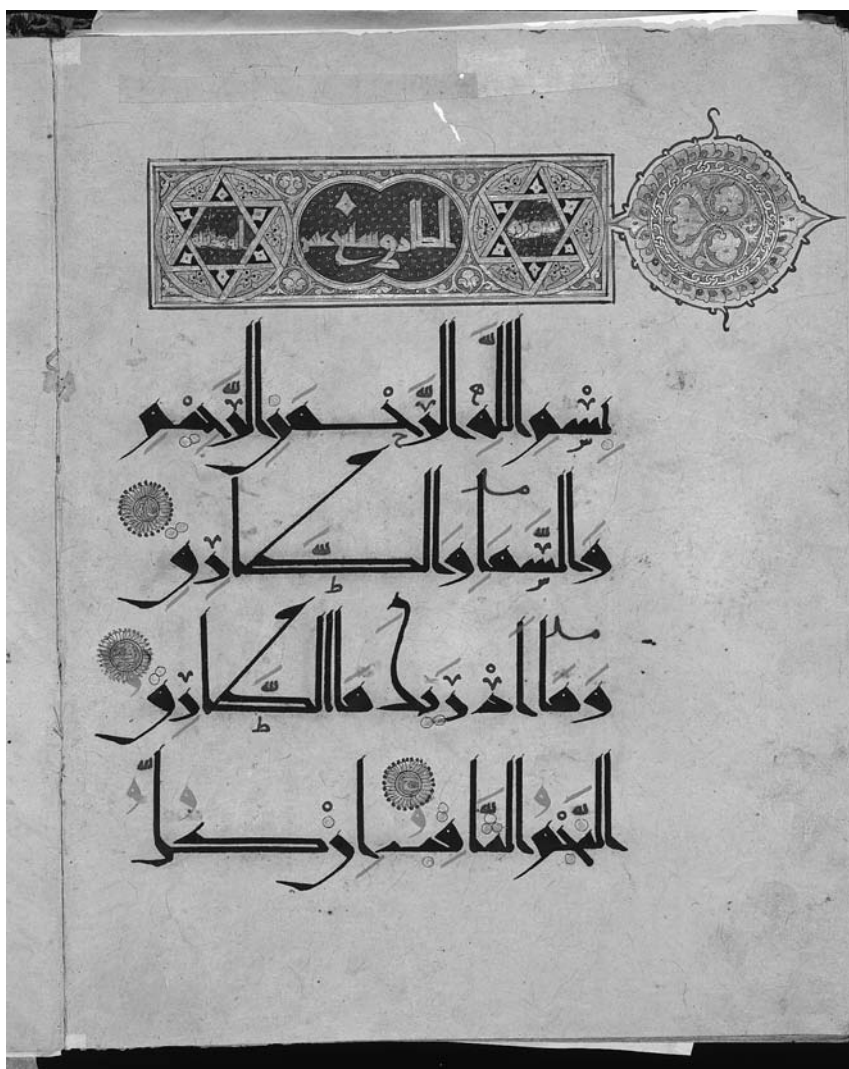 سورة الطارق
بِسْمِ اللَّهِ الرَّحْمَنِ الرَّحِيمِ
وَالسَّمَاءِ وَالطَّارِقِ
وَمَا أَدْرَيكَ مَا الطَّارِقُ
النَّجْمُ الثَّاقِبُ إِنْ كُلُّ